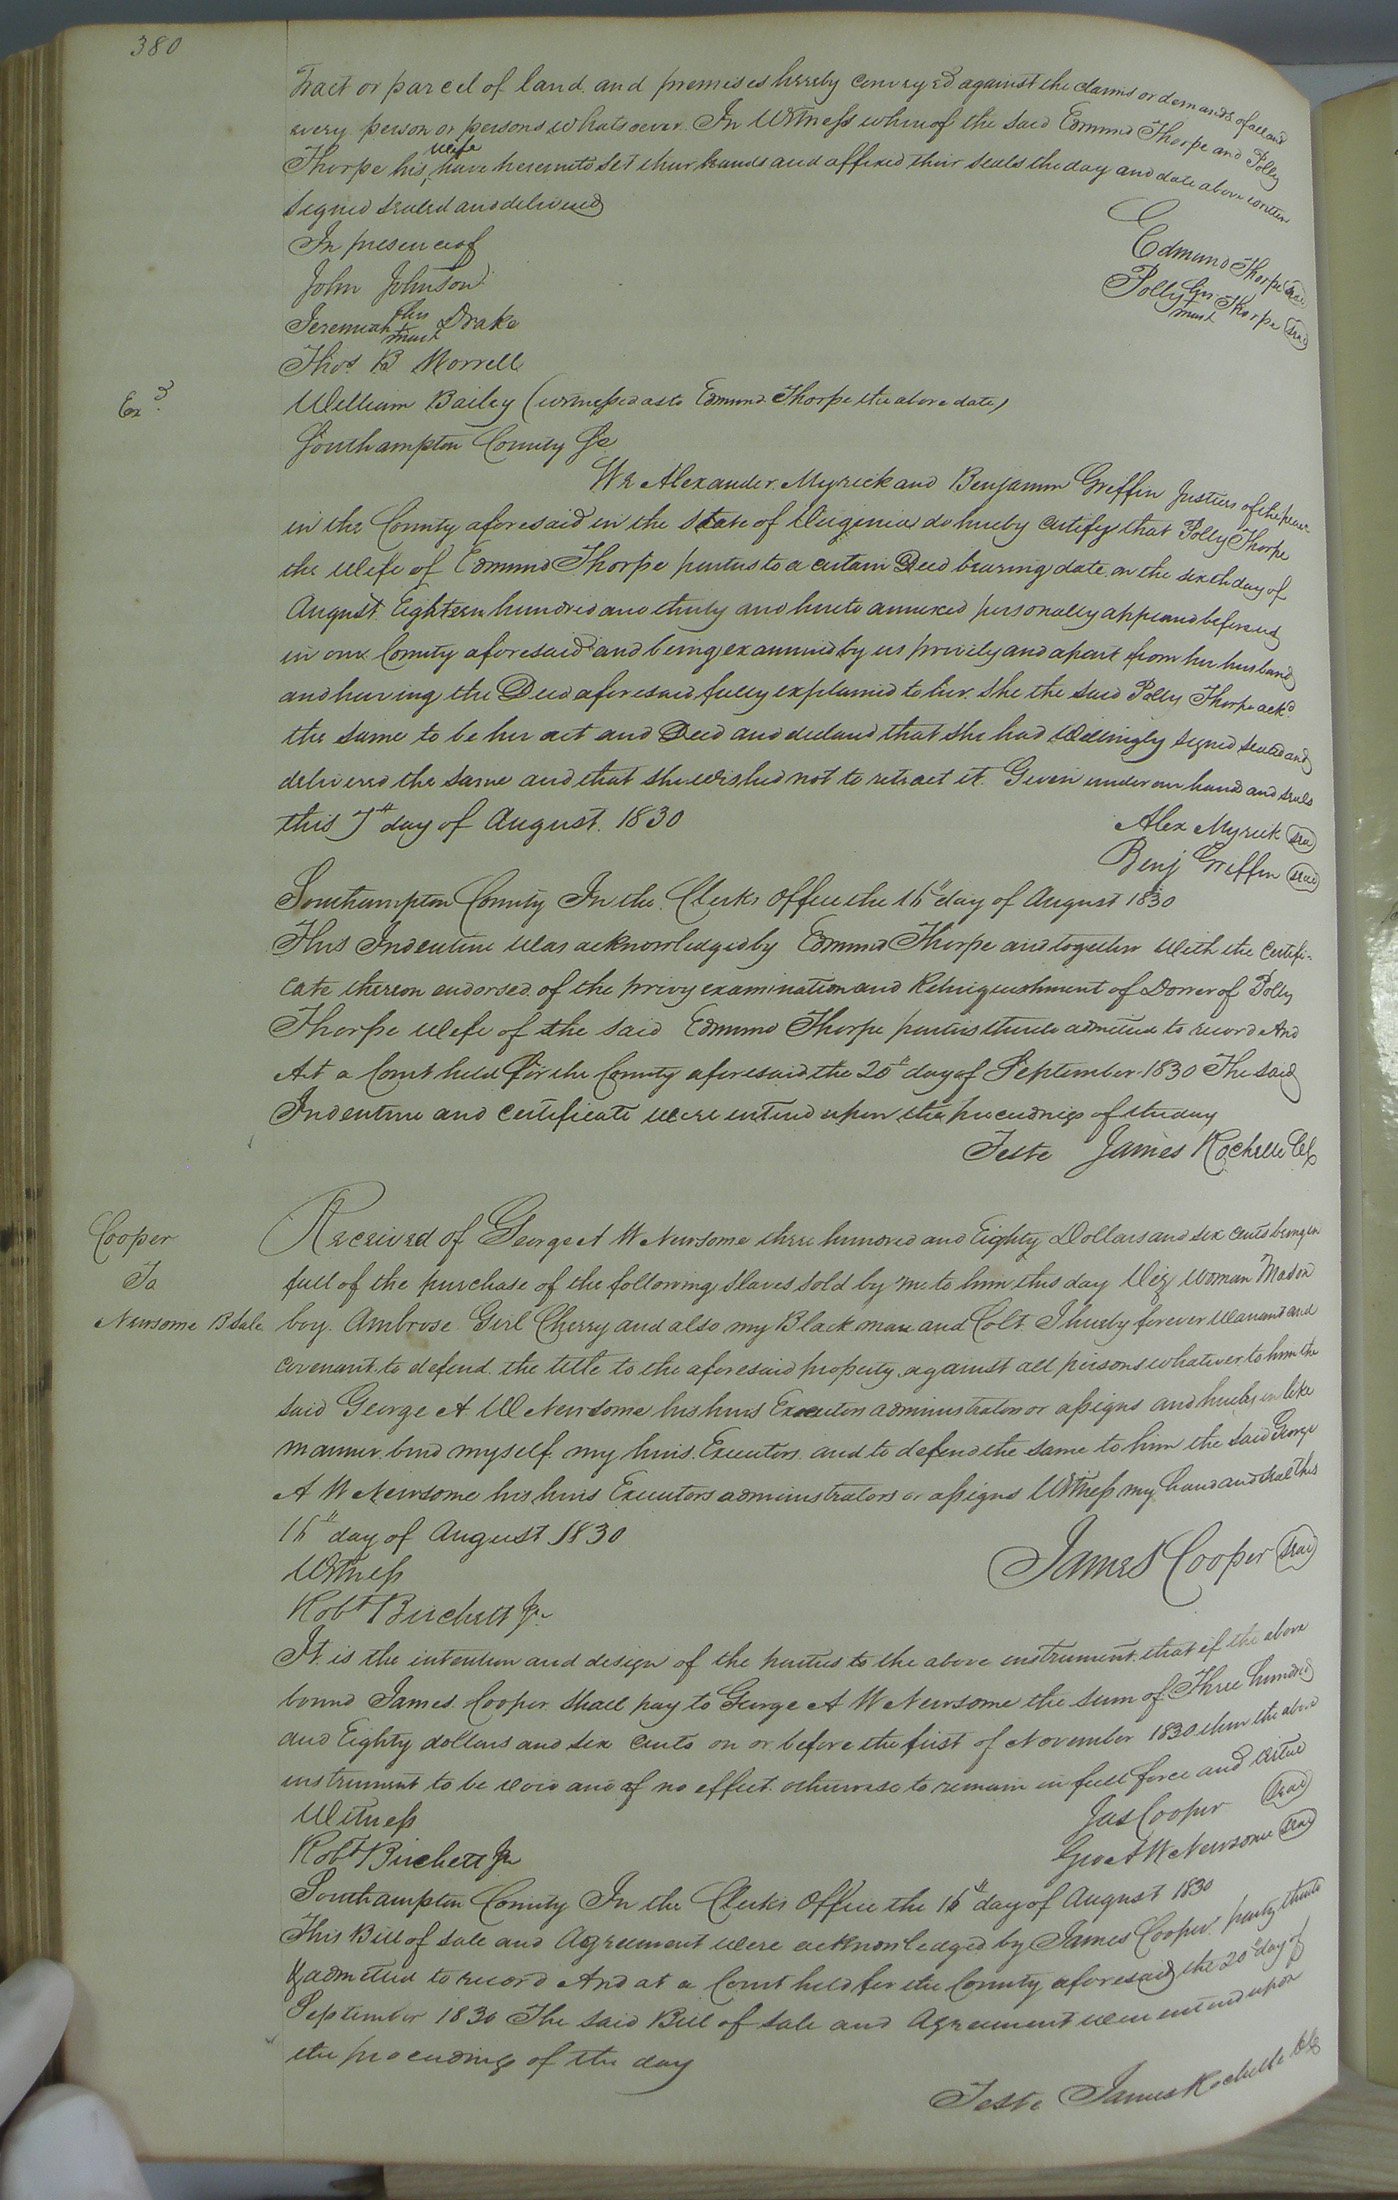 380
Tract or parcel of land and premises hereby conveyed against the claims or demands of all and
every person or persons whatsoever. In Witness whereof the said Edmund Thorpe and Polly
Thorpe his wife have hereunto set their hands and affixed their seals the day and date above written
Signed sealed and delivered
In presence of
Edmund Thorpe Seal
John Johnson
Polly her mark Thorpe Seal
Jeremiah his mark Drake
Thos B Worrell
William Bailey (witnessed as to Edmund Thorpe the above date)
Southampton County Sc
We Alexander Myrick and Benjamin Griffin Justices of the peace
in the County aforesaid in the State of Virginia do hereby certify that Polly Thorpe
the wife of Edmund Thorpe parties to a certain Deed bearing date on the sixth day of
August Eighteen hundred and thirty and hereto annexed personally appeared before us
in our County aforesaid and being examined by us privily and apart from her husband
and having the Deed aforesaid fully explained to her she the said Polly Thorpe ackd
the same to be her act and Deed and declared that she had willingly signed sealed and
delivered the same and that she wished not to retract it. Given under our hands and seals
this 7th day of August 1830
Alex Myrick Seal
Benj Griffin Seal
Southampton County In the Clerks office the 16th day of August 1830
This Indenture was acknowledged by Edmund Thorpe and together with the certifi-
cate thereon endorsed of the privy examination and Relinquishment of Dower of Polly
Thorpe wife of the said Edmund Thorpe parties thereto admitted to record And
At a Court held for the County aforesaid the 20th day of September 1830 The said
Indenture and certificate were entered upon the proceedings of the day
Teste James Rochelle Clk
Cooper
To
Newsome B Sale
Received of George A W Newsome three hundred and Eighty Dollars and six cents being in
full of the purchase of the following slaves sold by me to him this day Viz woman
boy Ambrose Girl Cherry and also my Black mare and Colt I hereby forever warrant and
covenant to defend the title to the aforesaid property against all persons whatever to him the
said George A W Newsome his heirs Executors administrators or assigns and hereby in like
manner bind myself my heirs Executors and to defend the same to him the said George
A W Newsome his heirs Executors administrators or assigns Witness my hand and seal this
16th day of August 1830
James Cooper Seal
Witness
Robt Birchett Jr
It is the intention and design of the parties to the above instrument that if the above
bound James Cooper shall pay to George A W Newsome the sum of Three hundred
and Eighty dollars and six cents on or before the first of November 1830 then the above
instrument to be void and of no effect otherwise to remain in full force and virtue
Witness
Jas Cooper Seal
Robt Birchett Jr
Geo A W Newsome Seal
Southampton County In the Clerk's Office the 16th day of August 1830
This Bill of sale and Agreement were acknowledged by James Cooper party thereto
& admitted to record And at a Court held for the County aforesaid the 20th day of
September 1830 The said Bill of sale and Agreement were entered upon
the proceedings of the day
Teste James Rochelle Clk